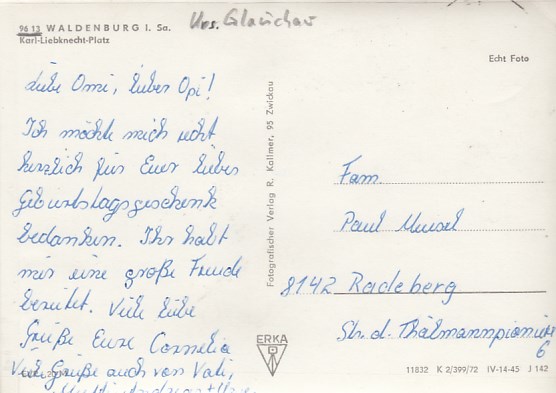 9613 WALDENBURG I. Sa. Krs. Glauchau
Karl-Liebknecht-Platz
Echt Foto
Liebe Omi, lieber Opi!
Ich möchte mich recht
herzlich für Euer liebes
Geburtstagsgeschenk
bedanken. Ihr habt
mir eine große Freude
bereitet. Viele liebe
Grüße Eure Cornelia
Viele Grüße auch von Vati,
Mutti, Andreas +
Fotografischer Verlag R. Kallmer, 95 Zwickau
ERKA
Fam.
Paul
8142 Radeberg
Str. d. Thälmannpioniere
6
11832 K 2/399/72 IV-14-45 J 142